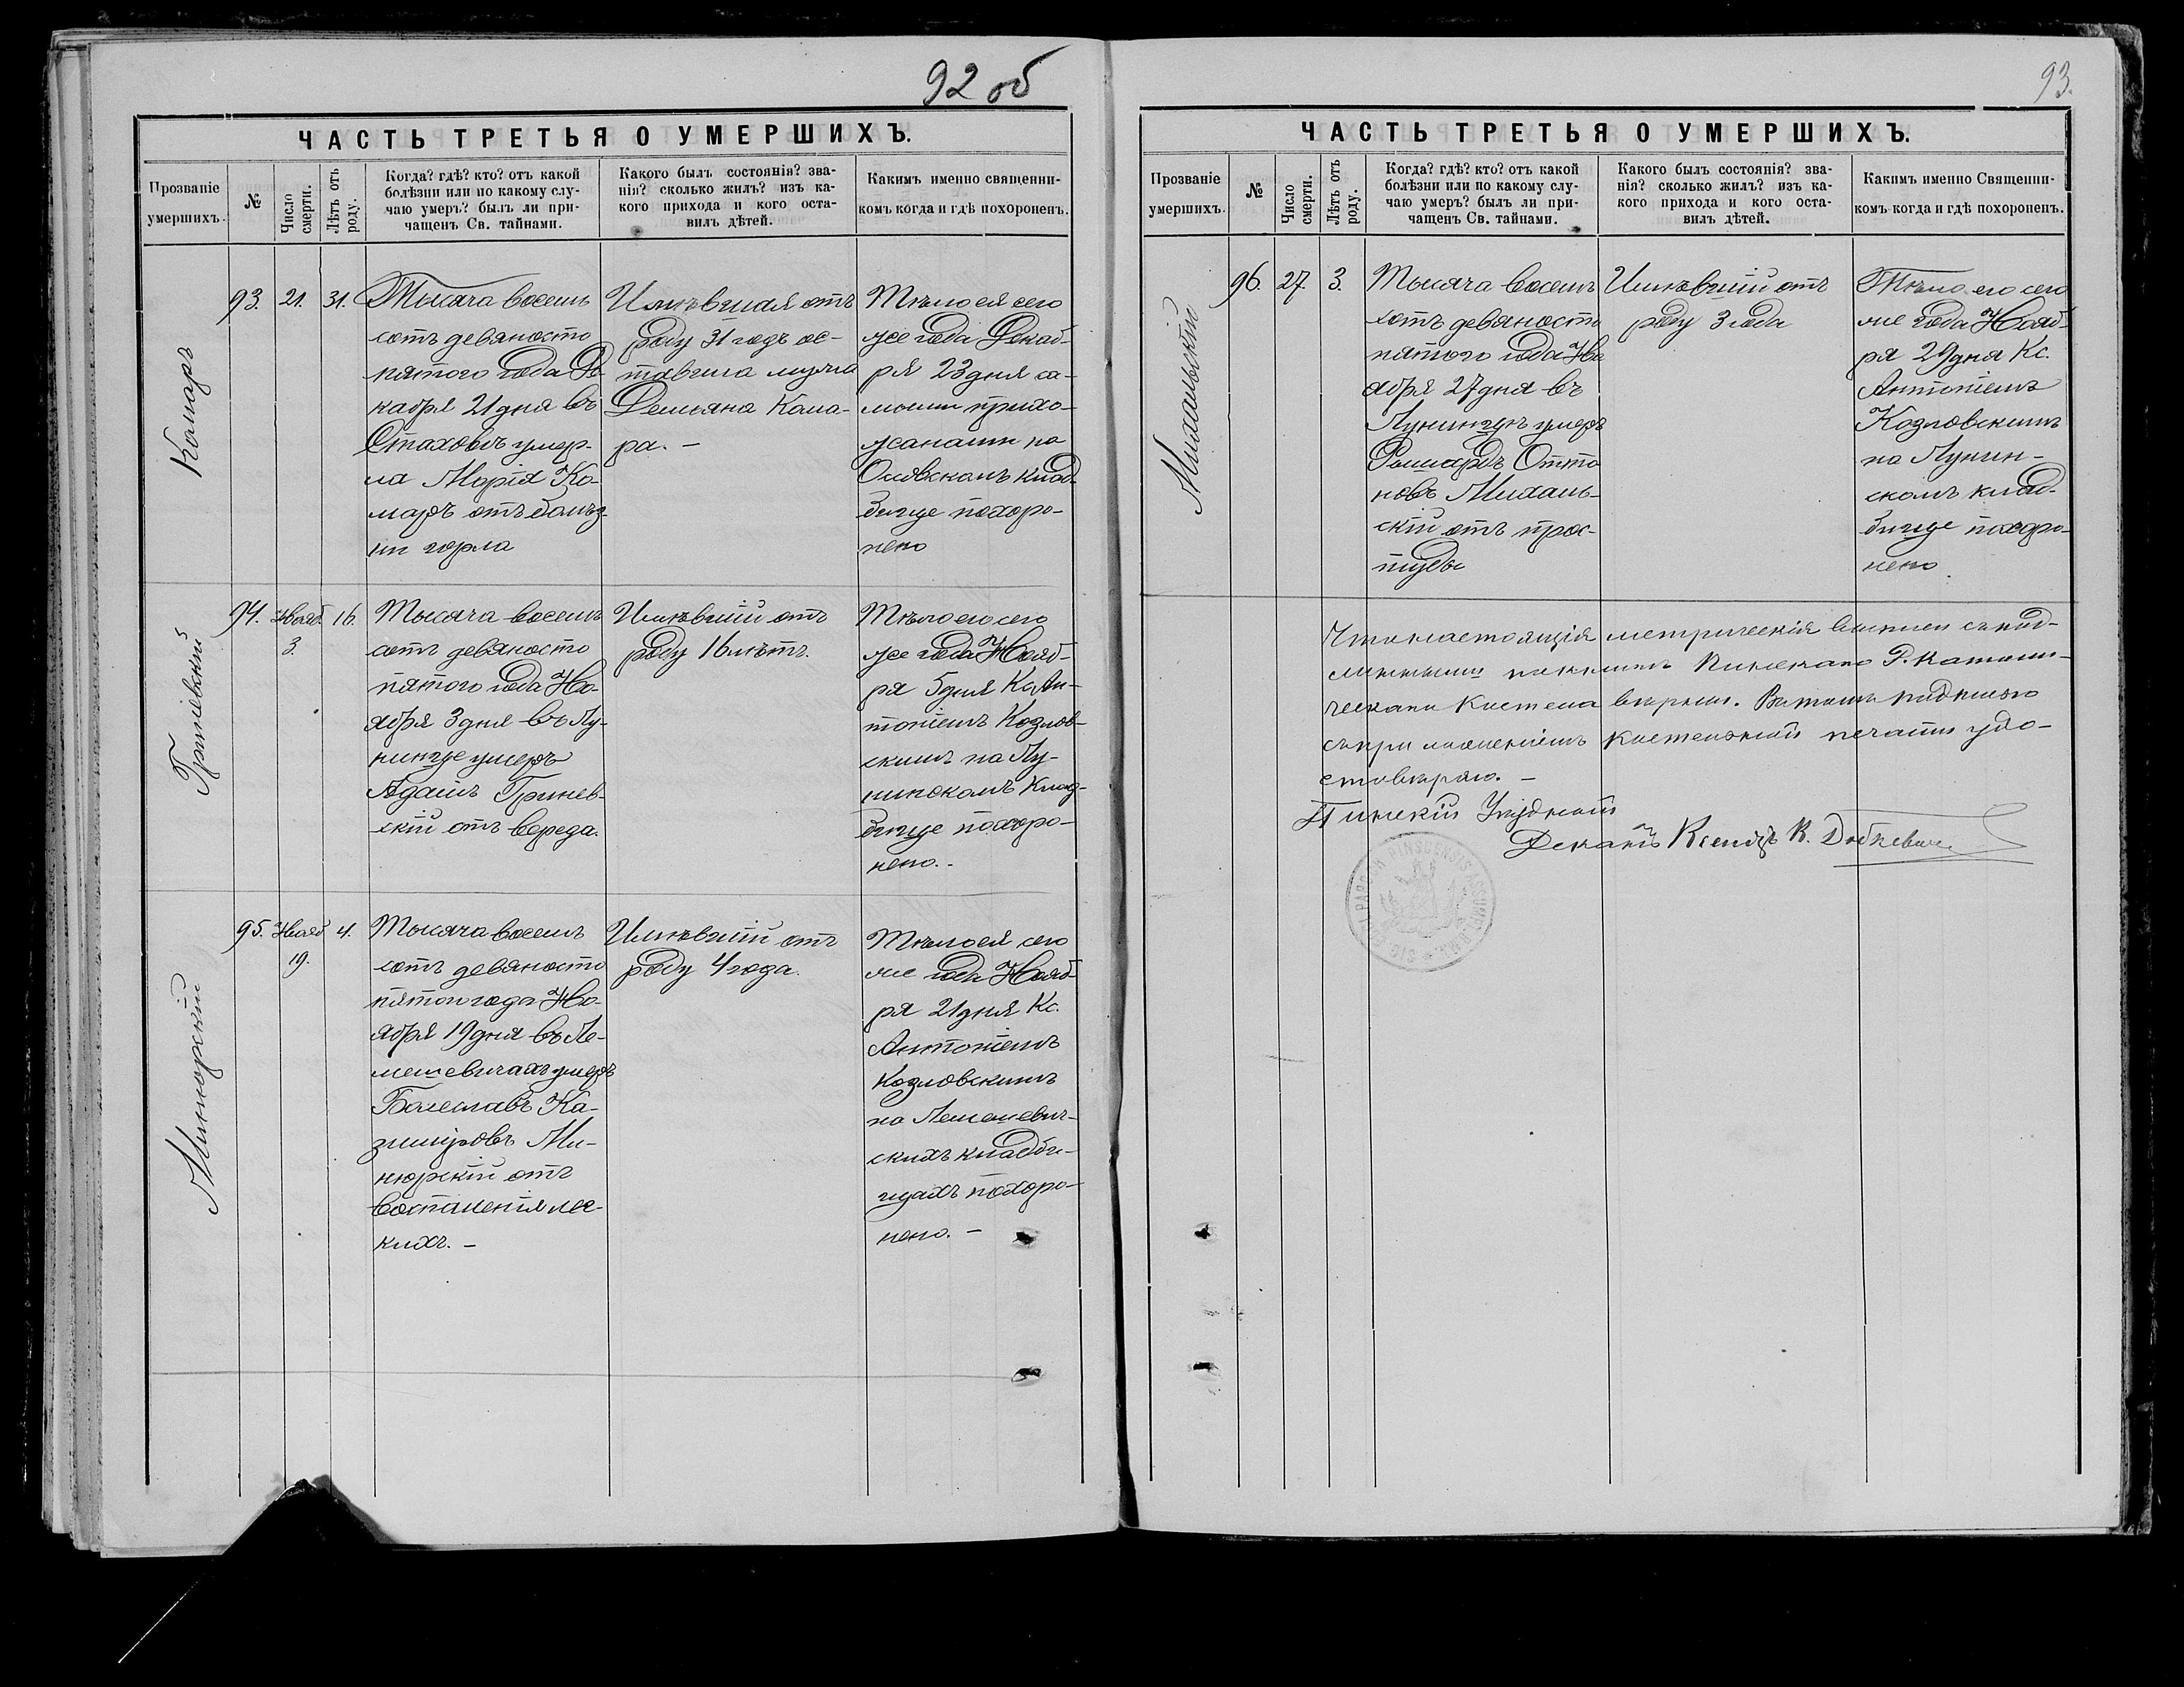 92 об
ЧАСТЬ ТРЕТЬЯ О УМЕРШИХЪ.
Прозваніе
умершихъ.
№
Число
смерти.
Лѣтъ отъ
роду.
Когда? гдѣ? кто? отъ какой
болѣзни или по какому слу-
чаю умеръ? былъ ли при-
чащенъ Св. тайнами.
Какого былъ состоянія? зва-
нія? сколько жилъ? изъ ка-
кого прихода и кого оста-
вилъ дѣтей.
Какимъ именно священни-
комъ когда и гдѣ похороненъ.
Комаръ
93.
21.
31.
Тысяча восемь
сотъ девяносто
пятого года Де
кабря 21 дня въ
Стаховѣ умер-
ла Марія Ко-
маръ отъ болѣз-
ни горла
Имѣвшая отъ
роду 31 годъ ос-
тавила мужа
Демьяна Кома-
ра. –
Тѣло ея сего
же года Декаб-
ря 23 дня са-
мыми прихо-
жанами на
кладбище похоро-
нено
Гриневскій
94.
Нояб.
3.
16.
Тысяча восемь
сотъ девяносто
пятого года Но-
ября 3 дня въ Лу-
нинце умеръ
Адамъ Гринев-
скій отъ вереда.
Имѣвшій отъ
роду 16 лѣтъ.
Тѣло его сего
же года Нояб-
ря 5 дня Кс. Ан-
тоніемъ Козлов-
скимъ на Лу-
нинскомъ клад-
бище похоро-
нено. -
Минюрскій
95.
Нояб
19.
4.
Тысяча восемь
сотъ девяносто
пятого года Но-
ября 19 дня въ Ле-
мешевичахъ умеръ
Болеславъ Ка-
зимировъ Ми-
нюрскій отъ
воспаленія лег-
кихъ. –
Имѣвшій отъ
роду 4 года.
Тѣло ея сего
же года Нояб-
ря 21 дня Кс.
Антоніемъ
Козловскимъ
на Лемешевич-
скихъ кладби-
щахъ похоро-
нено. –
93.
ЧАСТЬ ТРЕТЬЯ О УМЕРШИХЪ.
Прозваніе
умершихъ.
№
Число
смерти.
Лѣтъ отъ
роду.
Когда? гдѣ? кто? отъ какой
болѣзни или по какому слу-
чаю умеръ? былъ ли при-
чащенъ Св. тайнами.
Какого былъ состоянія? зва-
нія? сколько жилъ? изъ ка-
кого прихода и кого оста-
вилъ дѣтей.
Какимъ именно Священни-
комъ когда и гдѣ похороненъ.
Михальскій
96.
27.
3.
Тысяча восемь
сотъ девяносто
пятого года Но
ября 27 дня въ
Лунинцѣ умеръ
Ромуардъ Отто
новъ Михаль-
скій отъ прос-
туды
Имѣвшій отъ
роду 3 года
Тѣло его сего
же года Нояб-
ря 29 дня Кс.
Антоніемъ
Козловскимъ
на Лунин-
скомъ клад-
бище похоро-
нено
Что настоящія метрическія выписи съ под-
линными Пинскаго Р. Католи-
ческаго Костела вѣрны. Въ томъ подписью
съ приложеніемъ костельной печати удо-
стовѣряю. –
Пинскій Уѣздный
Деканъ Ксендзъ К.